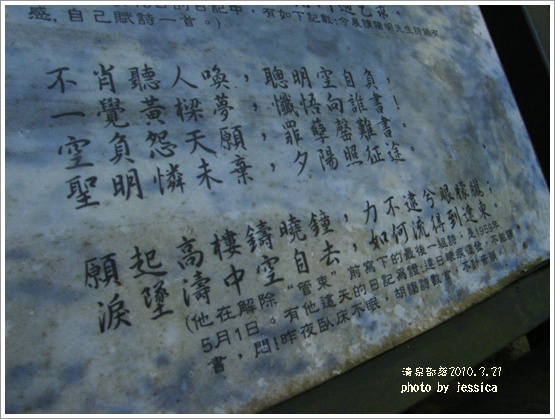 日的日記中,有如下記載:今晨讀陽明先生詩
感,自己賦詩一首。)
不肖聽人喚,聰明空自負,
一覺黃樑夢,懺悟向誰書!
空負怨天願,罪孽罄難書。
聖明憐未棄,夕陽照征途。
願起高樓鑄曉鐘,力不逮兮眼矇矓;
淚墜濤中空自去,如何流得到遼東。
(他在解除"管束"前寫下的最後一組詩,是1959年
5月1日。有他這天的日記為證:連日
書,悶!昨夜臥床不眠,胡謅詩數首,不計
清泉部落2010.3.27
photo by jessica